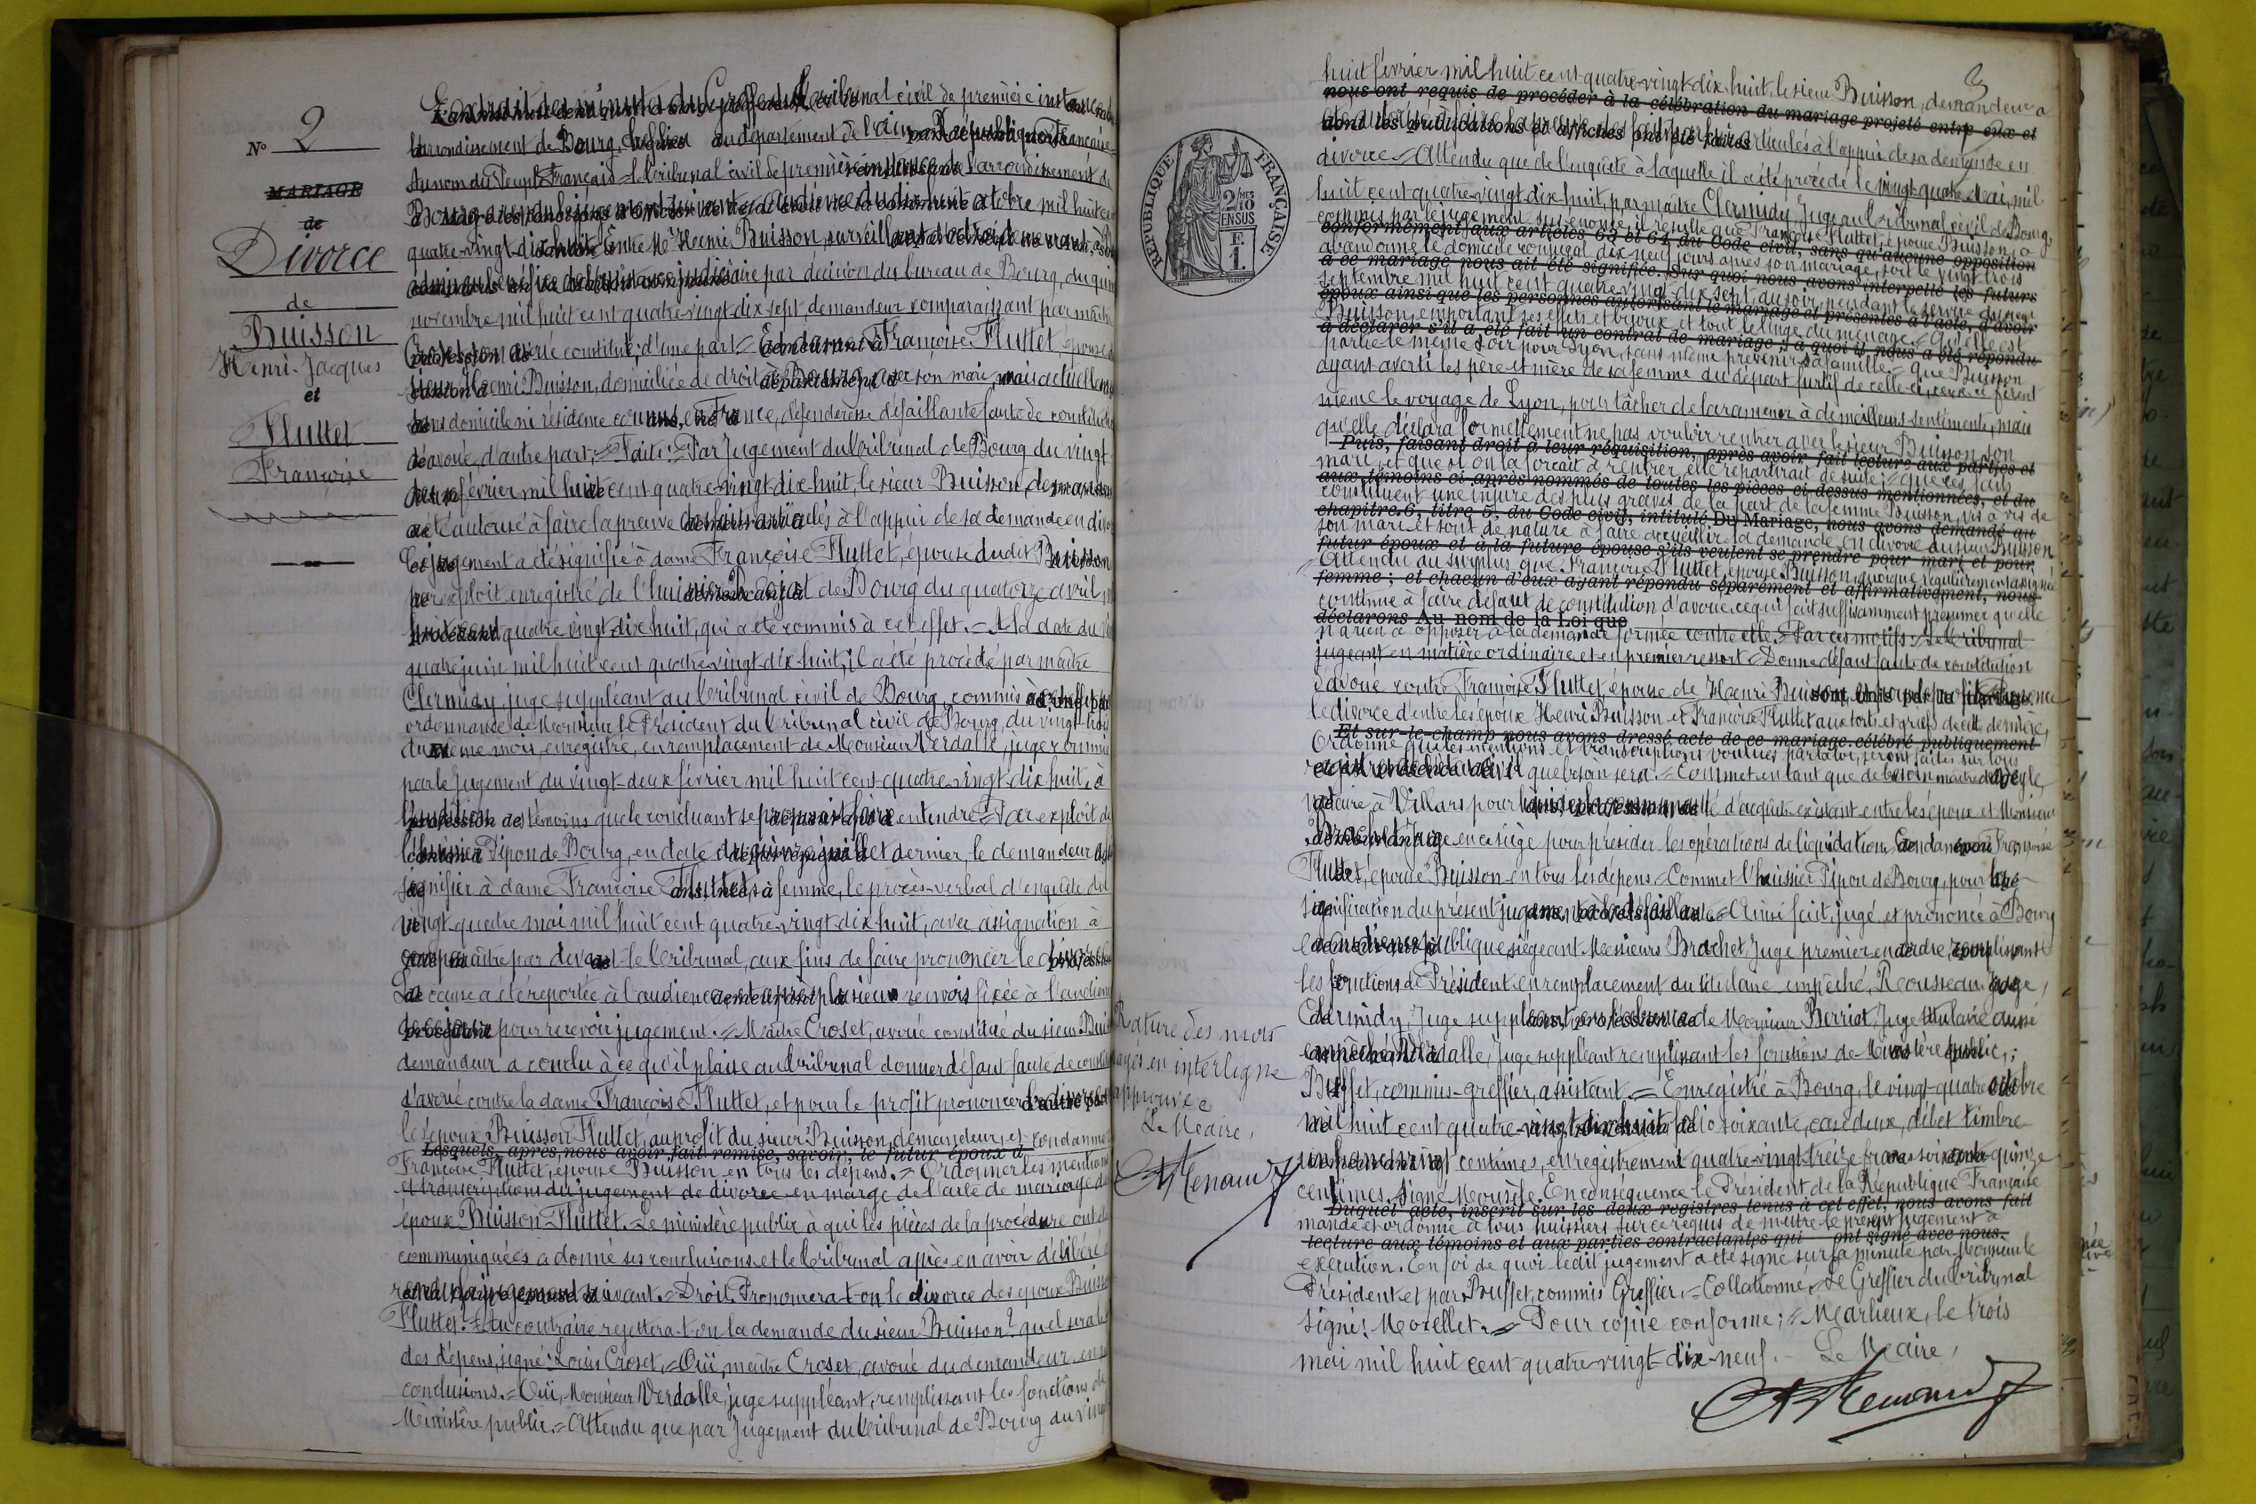 N° 2
MARIAGE
de
Divorce
de
Buisson
Henri-Jacques
et
Fluttet
Françoise
Extrait des minutes du Greffe du Tribunal civil de première instance
l'arrondissement de Bourg, département de l'Ain République Française
Au nom du Peuple Français = Le Tribunal civil de première instance de l'arrondissement de
Bourg a rendu le jugement suivant = Audience du dix huit octobre mil huit cent
quatre-vingt-dix-huit Entre Mr Henri Buisson, surveillant demeurant à
admis au bénéfice de l'assistance judiciaire par décision du bureau de Bourg, du quinze
novembre mil huit cent quatre vingt dix sept demandeur comparaissant par maître
Croset son avoué constitué, d'une part = Et dame Françoise Fluttet, épouse
sieur Henri Buisson, domiciliée de droit à Bourg, avec son mari, mais actuellement
sans domicile ni résidence connus, en France, défenderesse défaillante faute de constitution
d'avoué, d'autre part. = Faits: = Par Jugement du Tribunal de Bourg du vingt
deux février mil huit cent quatre-vingt-dix-huit, le sieur Buisson, demandeur
a été autorisé à faire la preuve des faits articulés à l'appui de sa demande en divorce
Ce jugement a été signifié à dame Françoise Fluttet, épouse dudit Buisson
par exploit enregistré de l'huissier de Bourg du quatorze avril, mil
huit cent quatre vingt dix huit, qui a été commis à cet effet. = A la date du vingt
quatre juin mil huit cent quatre-vingt-dix-huit, il a été procédé par maître
Clermidy, juge suppléant au Tribunal civil de Bourg, commis à cet effet par
ordonnance de Monsieur le Président du Tribunal civil de Bourg, du vingt-trois
du même mois, enregistré, en remplacement de Monsieur Verdalle, juge commis
par le Jugement du vingt-deux février mil huit cent quatre-vingt-dix huit, à
l'audition des témoins que le concluant se proposait faire entendre = Par exploit de
l'huissier Pipon de Bourg, en date du quinze juillet dernier, le demandeur a fait
signifier à dame Françoise Fluttet, sa femme, le procès-verbal d'enquête du
vingt-quatre mai mil huit cent quatre vingt dix huit, avec assignation à
comparaître par devant le Tribunal, aux fins de faire prononcer le divorce
La cause a été reportée à l'audience et après plusieurs renvois fixée à l'audience
de ce jour pour recevoir jugement. = Maître Croset, avoué constitué du sieur Buisson
demandeur a conclu à ce qu'il plaise au Tribunal donner défaut faute de constitution
d'avoué contre la dame Françoise Fluttet, et pour le profit prononcer le divorce
les époux Buisson Fluttet, au profit du sieur Buisson, demandeur, et condamner
Lesquels, après nous avoir fait remise, savoir, le futur époux d
Françoise Fluttet, épouse Buisson en tous les dépens. = Ordonner les mentions
et transcriptions du jugement de divorce en marge de l'acte de mariage des
époux Buisson-Fluttet. Le ministère public à qui les pièces de la procédure ont été
communiquées a donné ses conclusions et le Tribunal après en avoir délibéré
rendu le jugement suivant. = Droit. Prononcera-t-on le divorce des époux Buisson
Fluttet. = Au contraire rejettera-t-on la demande du sieur Buisson? quel sera le
des dépens, signé: Louis Croset. = Ouï, maître Croset, avoué du demandeur en ses
conclusions. = Ouï, Monsieur Verdalle, juge suppléant, remplissant les fonctions de
Ministère public. = Attendu que par Jugement du Tribunal de Bourg du vingt
3
RÉPUBLIQUE FRANÇAISE
2/10 EN SUS
F. 1.
huit février mil huit cent quatre-vingt-dix-huit, le sieur Buisson, demandeur a
nous ont requis de procéder à la célébration du mariage projeté entre eux et
été autorisé à faire la preuve des faits articulés à l'appui de sa demande en
dont les publications et affiches ont été faites
divorce. = Attendu que de l'enquête à laquelle il a été procédé le vingt-quatre Mai, mil
huit cent quatre-vingt dix huit, par maître Clermidy, Juge au Tribunal civil de Bourg,
commis par le jugement sus-énoncé, il résulte que Françoise Fluttet, épouse Buisson, a
conformément aux articles 63 et 64, du Code civil, sans qu'aucune opposition
abandonné le domicile conjugal dix neuf jours après son mariage, soit le vingt-trois
à ce mariage nous ait été signifiée. Sur quoi nous avons interpellé les futurs
septembre mil huit cent quatre-vingt-dix-sept, au soir, pendant le service du sieur
époux ainsi que les personnes autorisant le mariage et présentes à l'acte, d'avoir
Buisson, emportant ses effets et bijoux, et tout le linge du ménage. = Qu'elle est
à déclarer s'il a été fait un contrat de mariage, à quoi il nous a été répondu
partie le même soir pour Lyon, sans même prévenir sa famille. = que Buisson
ayant averti les père et mère de sa femme du départ furtif de celle-ci, ceux-ci firent
même le voyage de Lyon, pour tâcher de la ramener à de meilleurs sentiments, mais
qu'elle déclara formellement ne pas vouloir rentrer avec le sieur Buisson, son
Puis, faisant droit à leur réquisition, après avoir fait lecture aux parties et
mari, et que si on la forçait à rentrer, elle repartirait de suite; = que ces faits
aux témoins ci-après nommés de toutes les pièces ci-dessus mentionnées, et du
constituent une injure des plus graves de la part de la femme Buisson, vis à vis de
chapitre 6, titre 5, du Code civil, intitulé Du Mariage, nous avons demandé au
son mari et sont de nature à faire accueillir la demande en divorce du sieur Buisson
futur époux et à la future épouse s'ils veulent se prendre pour mari et pour
Attendu au surplus que Françoise Fluttet, épouse Buisson, quoique régulièrement assignée
femme; et chacun d'eux ayant répondu séparément et affirmativement, nous
continue à faire défaut de constitution d'avoué, ce qui fait suffisamment présumer qu'elle
déclarons Au nom de la Loi que
n'a rien à opposer à la demande formée contre elle. = Par ces motifs: = Le Tribunal
jugeant en matière ordinaire et en premier ressort = Donne défaut faute de constitution
d'avoué contre Françoise Fluttet, épouse de Henri Buisson, et pour le profit prononce
le divorce d'entre les époux Henri Buisson et Françoise Fluttet aux torts et griefs de cette dernière,
Et sur-le-champ nous avons dressé acte de ce mariage célébré publiquement
Ordonne que les mentions et transcriptions voulues par la loi, seront faites sur tous
registres de l'état civil que besoin sera. = Commet en tant que de besoin maître
notaire à Villars pour liquider la communauté d'acquêts existant entre les époux et Monsieur
Brochet Juge en ce siège pour présider les opérations de liquidation, Condamne Françoise
Fluttet, épouse Buisson en tous les dépens. = Commet l'huissier Pipon de Bourg, pour la
signification du présent jugement à la défaillante = Ainsi fait, jugé et prononcé à Bourg
en audience publique siégeant Messieurs Brochet Juge premier en ordre, remplissant
les fonctions de Président en remplacement du titulaire empêché, Rousseau juge,
Clermidy, Juge suppléant, en l'absence de Monsieur Berriot, Juge titulaire aussi
empêché, Verdalle, juge suppléant remplissant les fonctions de Ministère public;
Buffet, commis-greffier, assistant. = Enregistré à Bourg, le vingt-quatre octobre
mil huit cent quatre-vingt-dix-huit folio soixante, case deux, débet timbre
un franc vingt centimes, enregistrement quatre-vingt-treize francs soixante-quinze
centimes. Signé Mousèle. En conséquence le Président de la République Française
Duquel acte, inscrit sur les deux registres tenus à cet effet, nous avons fait
mande et ordonne à tous huissiers sur ce requis de mettre le présent jugement à
lecture aux témoins et aux parties contractantes qui ont signé avec nous.
exécution. En foi de quoi ledit jugement a été signé sur la minute par Monsieur le
Président et par Buffet, commis Greffier. = Collationné. = Le Greffier du tribunal
signé: Morellet. = Pour copie conforme; = Marlieux, le trois
mai mil huit cent quatre-vingt-dix-neuf. - Le Maire,
Rature des mots
rayés en interligne
approuvée
Le Maire,